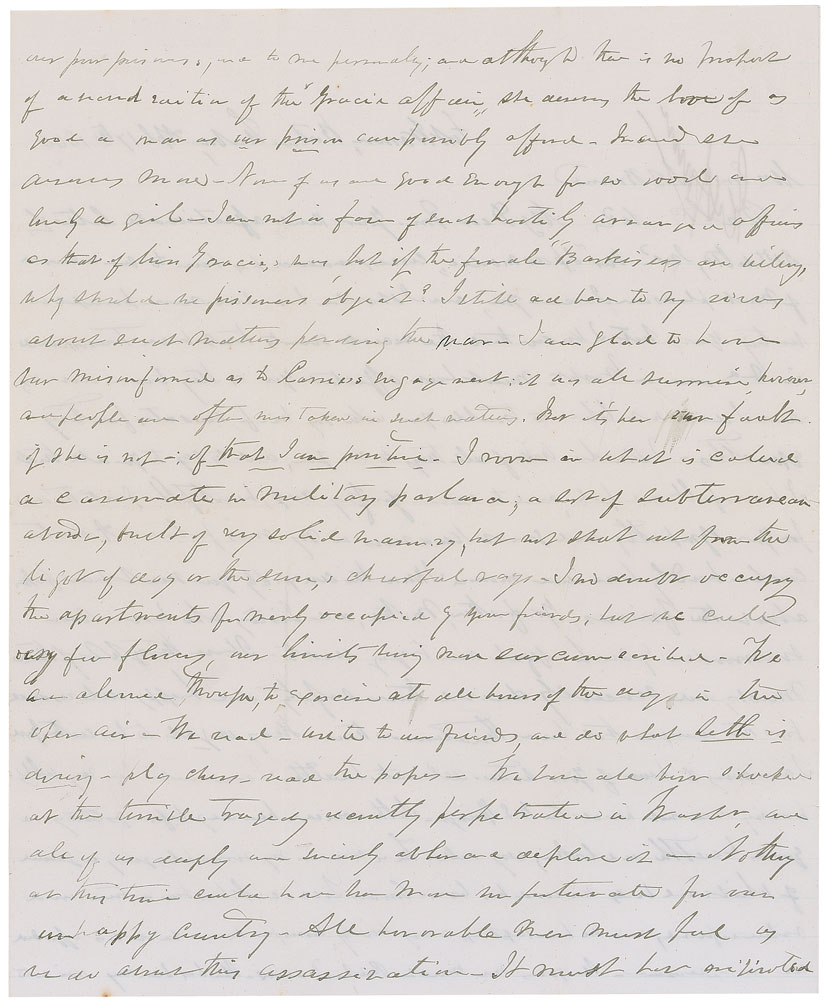 our poor prisoners, and to me personally; and although there is no prospect
of a second edition of the "Gracie affair", she deserves the love of as
good a man as our prison can possibly afford - Indeed she
deserves more - None of us are good enough for so good and
lovely a girl - I am not in favor of such hastily arranged affairs
as that of Miss Gracie's was, but if the female "Barkis's are willing,
why should we prisoners object? I still adhere to my views
about such matters pending the war - I am glad to have
been misinformed as to Carrie's engagement: it was all surmise, however,
and people are often mistaken in such matters. But it's her own fault
if she is not -; of that I am positive. I room in what is called
a casemate in military parlance; a sort of subterranean
abode, built of very solid masonry, but not shut out from the
light of day or the sun's cheerful rays - I no doubt occupy
the apartments formerly occupied by your friends; but we cull
very few flowers, our limits being more circumscribed - We
are allowed, though, to exercise at all hours of the day in the
open air - We read - write to our friends, and do what Seth is
doing - play chess - read the papers - We have all been shocked
at the terrible tragedy recently perpetrated in Washn, and
all of us deeply and sincerely abhor and deplore it - Nothing
at this time could have been more unfortunate for our
unhappy Country - All honorable men must feel as
we do about this assassination - It must have originated